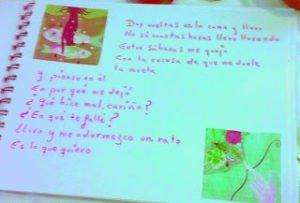 Doy vueltas en la cama y lloro
No sé cuantas horas llevo llorando
Entre sábanas me quejo
Con la excusa de que me duele
la muela
Y pienso en él
En por qué me dejó
¿Qué hice mal, cariño?
¿En qué te fallé?
Lloro y me adormezco un rato
Es lo que quiero